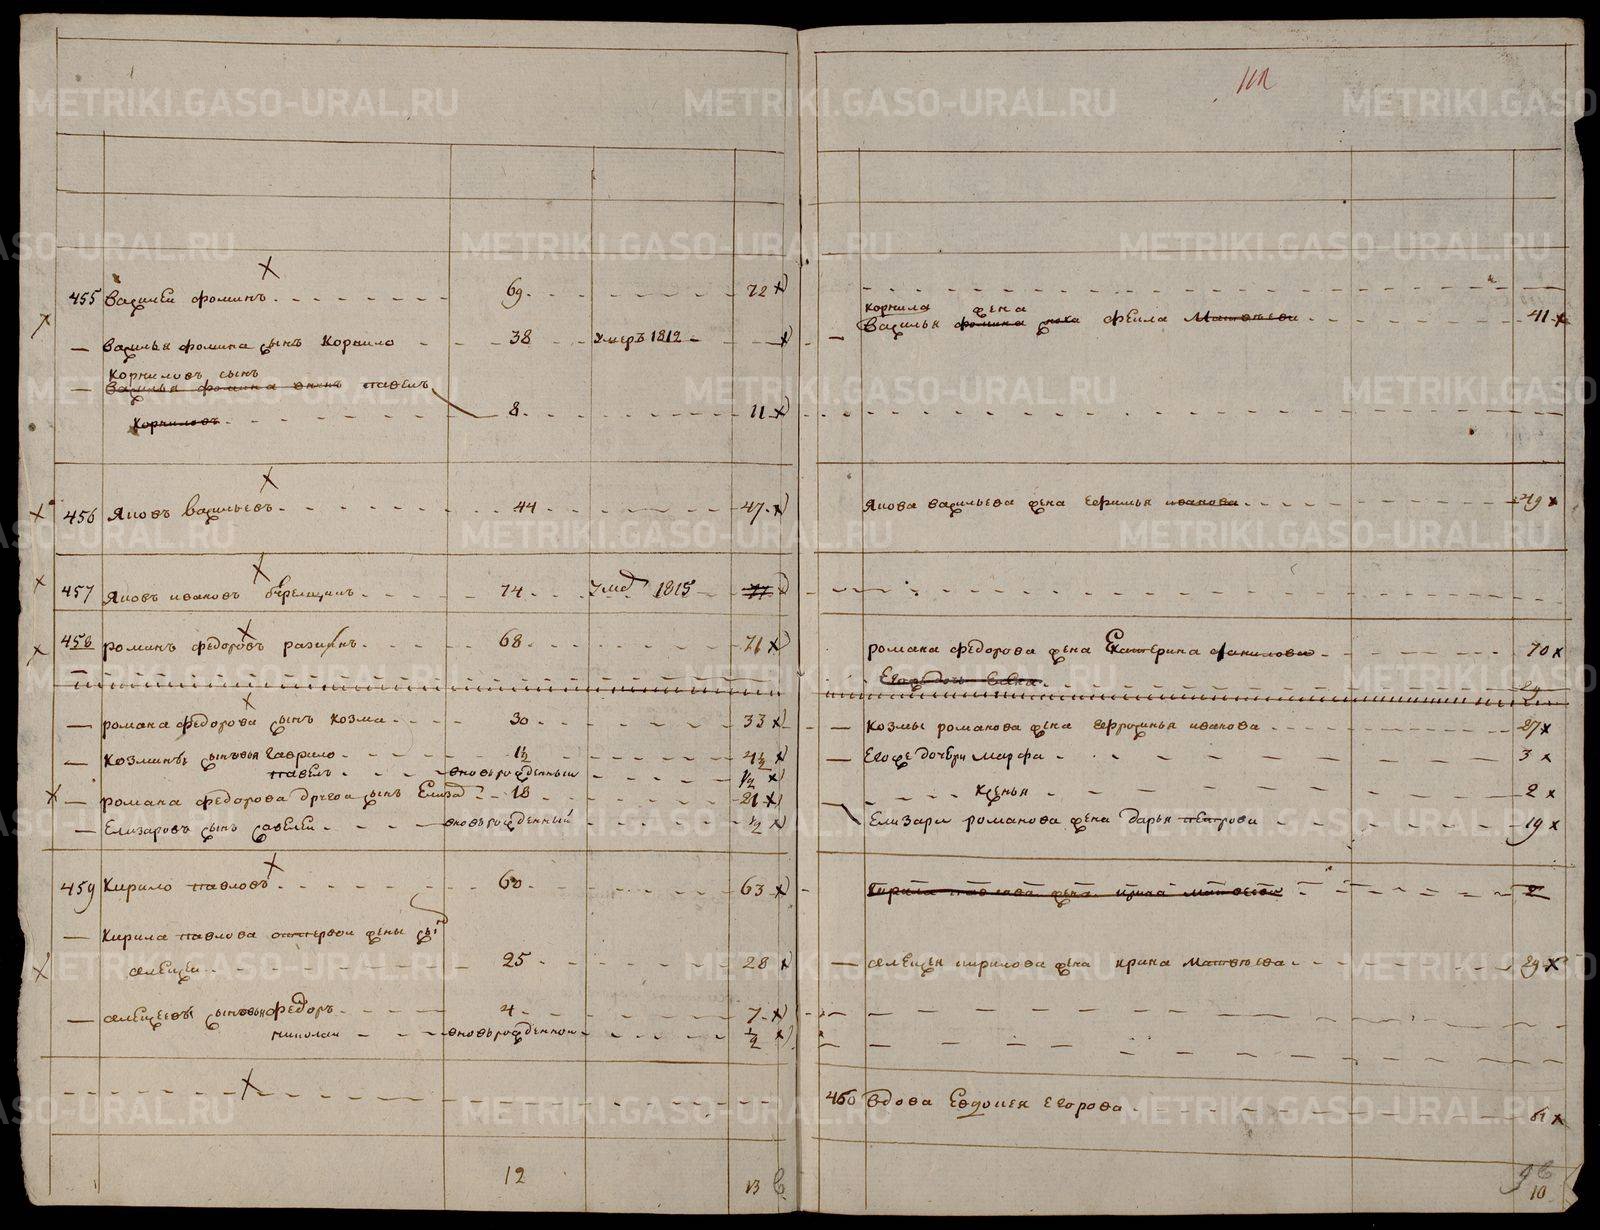 112
455 Василеи фоминъ 69 72
Василья фомина сынъ Корнило 38 Умеръ 1812
Корниловъ сынъ
Василья фомина внукъ павелъ
Корниловъ 8 11
456 Яковъ Васильевъ 44 47
457 Яковъ ивановъ 74 1815 77
458 романъ федоровъ 68 71
романа федорова сынъ козма 30 33
Козминъ сынъвья Гаврило 1½ 4½
павелъ вновьрожденный ½
романа федорова другой сынъ Елизар 18 21
Елизаровъ сынъ савелеи вновьрожденный ½
459 Кирило павловъ 60 63
Кирила павлова отпервои жены сынъ
алексеи 25 28
алексеевы сыновья федоръ 4 7
николаи вновьрожденнои ½
12 13
Корнила жена
Василья фомина сноха фекла Матвеева 41
Якова васильева жена Ефимья иванова 49
романа федорова жена Екатерина данилова 70
Егорь дочь 29
Козмы романова жена Ефросинья иванова 27
Егоже дочери марфа 3
Ксенья 2
Елизара романова жена дарья петрова 19
Кирила павлова жена ирина матвеева
алексея кирилова жена ирина Матвеева 29
460 вдова Евдокея Егорова 61
9
10
METRIKI.GASO-URAL.RU